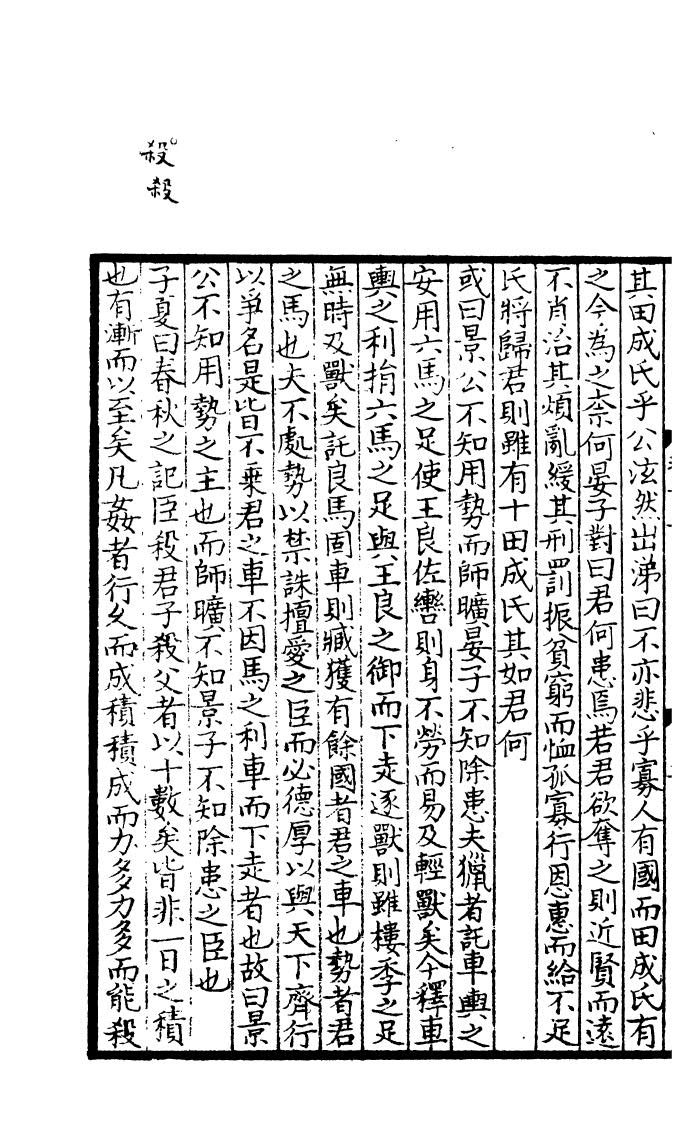 殺
殺
其田成氏乎公泫然出涕曰不亦悲乎寡人有國而田成氏有
之今為之柰何晏子對曰君何患焉若君欲奪之則近賢而遠
不肖治其煩亂緩其刑罰振貧窮而恤孤寡行恩惠而給不足
氏將歸君則雖有十田成氏其如君何
或曰景公不知用勢而師曠晏子不知除患夫獵者託車輿之
安用六馬之足使王良佐轡則身不勞而易及輕獸矣今釋車
輿之利捐六馬之足與王良之御而下走逐獸則雖樓季之足
無時及獸矣託良馬固車則臧獲有餘國者君之車也勢者君
之馬也夫不處勢以禁誅擅愛之臣而必德厚以與天下齊行
以爭名是皆不乗君之車不因馬之利車而下走者也故曰景
公不知用勢之主也而師曠不知景子不知除患之臣也
子夏曰春秋之記臣殺君子殺父者以十數矣皆非一日之積
也有漸而以至矣凡姦者行久而成積積成而力多力多而能殺